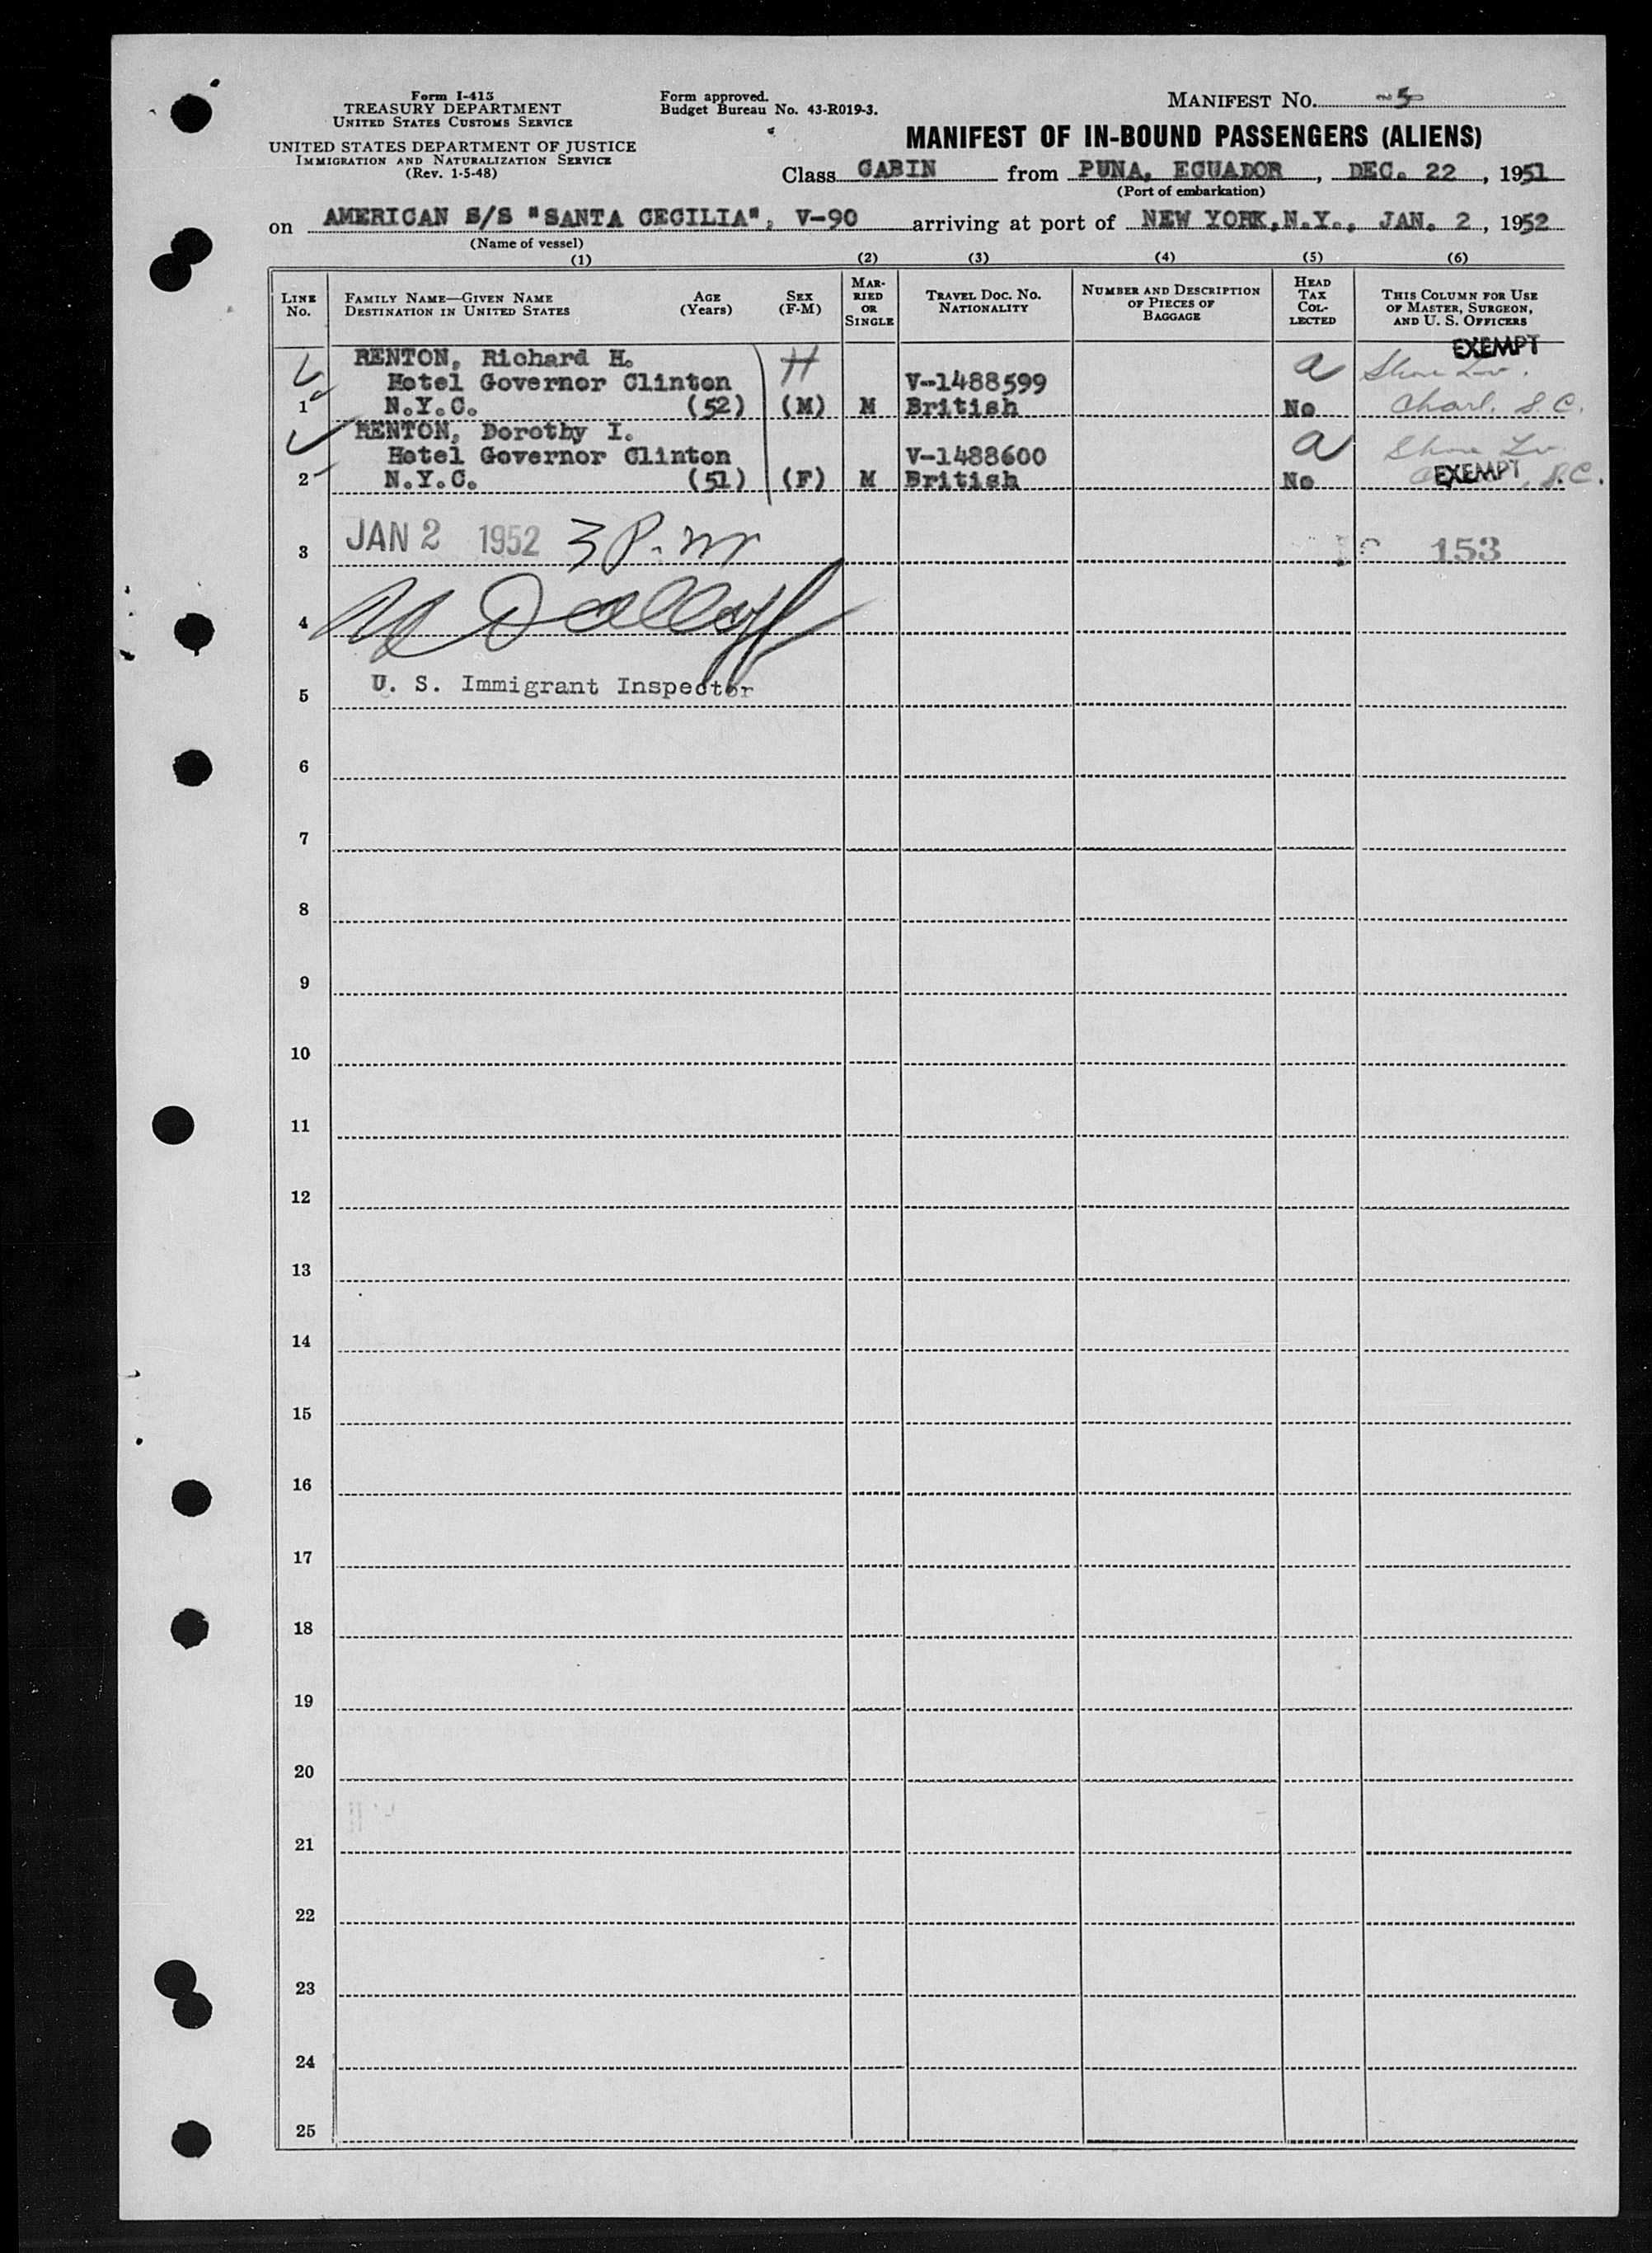 Form I-415
TREASURY DEPARTMENT
UNITED STATES CUSTOMS SERVICE
UNITED STATES DEPARTMENT OF JUSTICE
IMMIGRATION AND NATURALIZATION SERVICE
(Rev. 1-5-48)
Form approved.
Budget Bureau No. 43-R019-3.
MANIFEST NO. 5
MANIFEST OF IN-BOUND PASSENGERS (ALIENS)
Class CABIN from PUNA, ECUADOR, DEC. 22, 1951
(Port of embarkation)
on AMERICAN S/S "SANTA CECILIA", V-90 arriving at port of NEW YORK, N.Y., JAN. 2, 1952
(Name of vessel)
(1) (2) (3) (4) (5) (6)
LINE No.
FAMILY NAME—GIVEN NAME
DESTINATION IN UNITED STATES
AGE (Years)
SEX (F-M)
MARRIED OR SINGLE
TRAVEL DOC. NO. NATIONALITY
NUMBER AND DESCRIPTION OF PIECES OF BAGGAGE
HEAD TAX COLLECTED
THIS COLUMN FOR USE OF MASTER, SURGEON, AND U. S. OFFICERS
EXEMPT
RENTON, Richard H. H a
Hotel Governor Clinton V-1488599
1 N.Y.C. (52) (M) M British No Charl. S.C.
RENTON, Dorothy I. a
Hotel Governor Clinton V-1488600
2 N.Y.C. (51) (F) M British No EXEMPT S.C.
3 JAN 2 1952 3 P.m 153
4
5 U. S. Immigrant Inspector
6
7
8
9
10
11
12
13
14
15
16
17
18
19
20
21
22
23
24
25